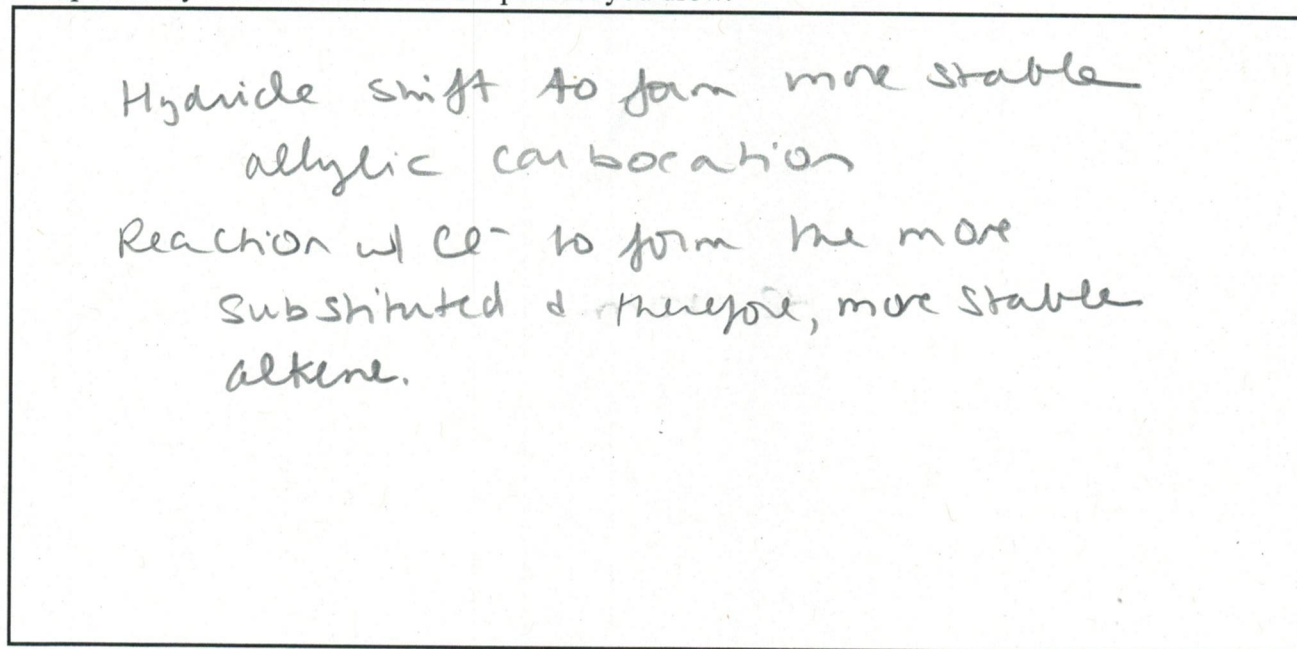 Hydride shift to form more stable
allylic carbocation
Reaction w/ Cl- to form the more
substituted & therefore, more stable
alkene.